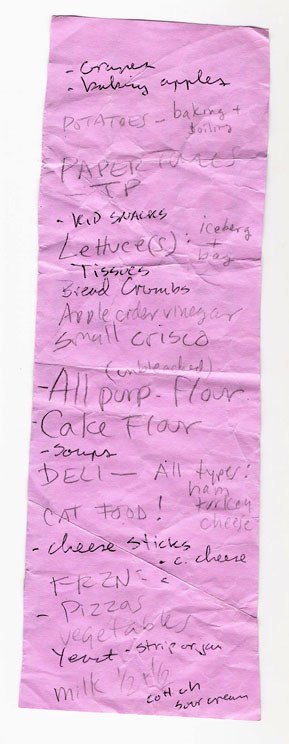 - Grapes
- baking apples
POTATOES - baking +
boiling
- PAPER TOWELS
- TP
- KID SNACKS
Lettuce(s): iceberg
+
bag
Tissues
Bread Crumbs
Apple cider vinegar
Small crisco
(unbleached)
- All purp. flour
- Cake Flour
- Soups
DELI - All types:
ham
turkey
cheese
CAT FOOD!
- cheese sticks
- c. cheese
FRZN -
- Pizzas
vegetables
Yeast - strip or jar
milk 1/2 + 1/2
cott ch
sour cream